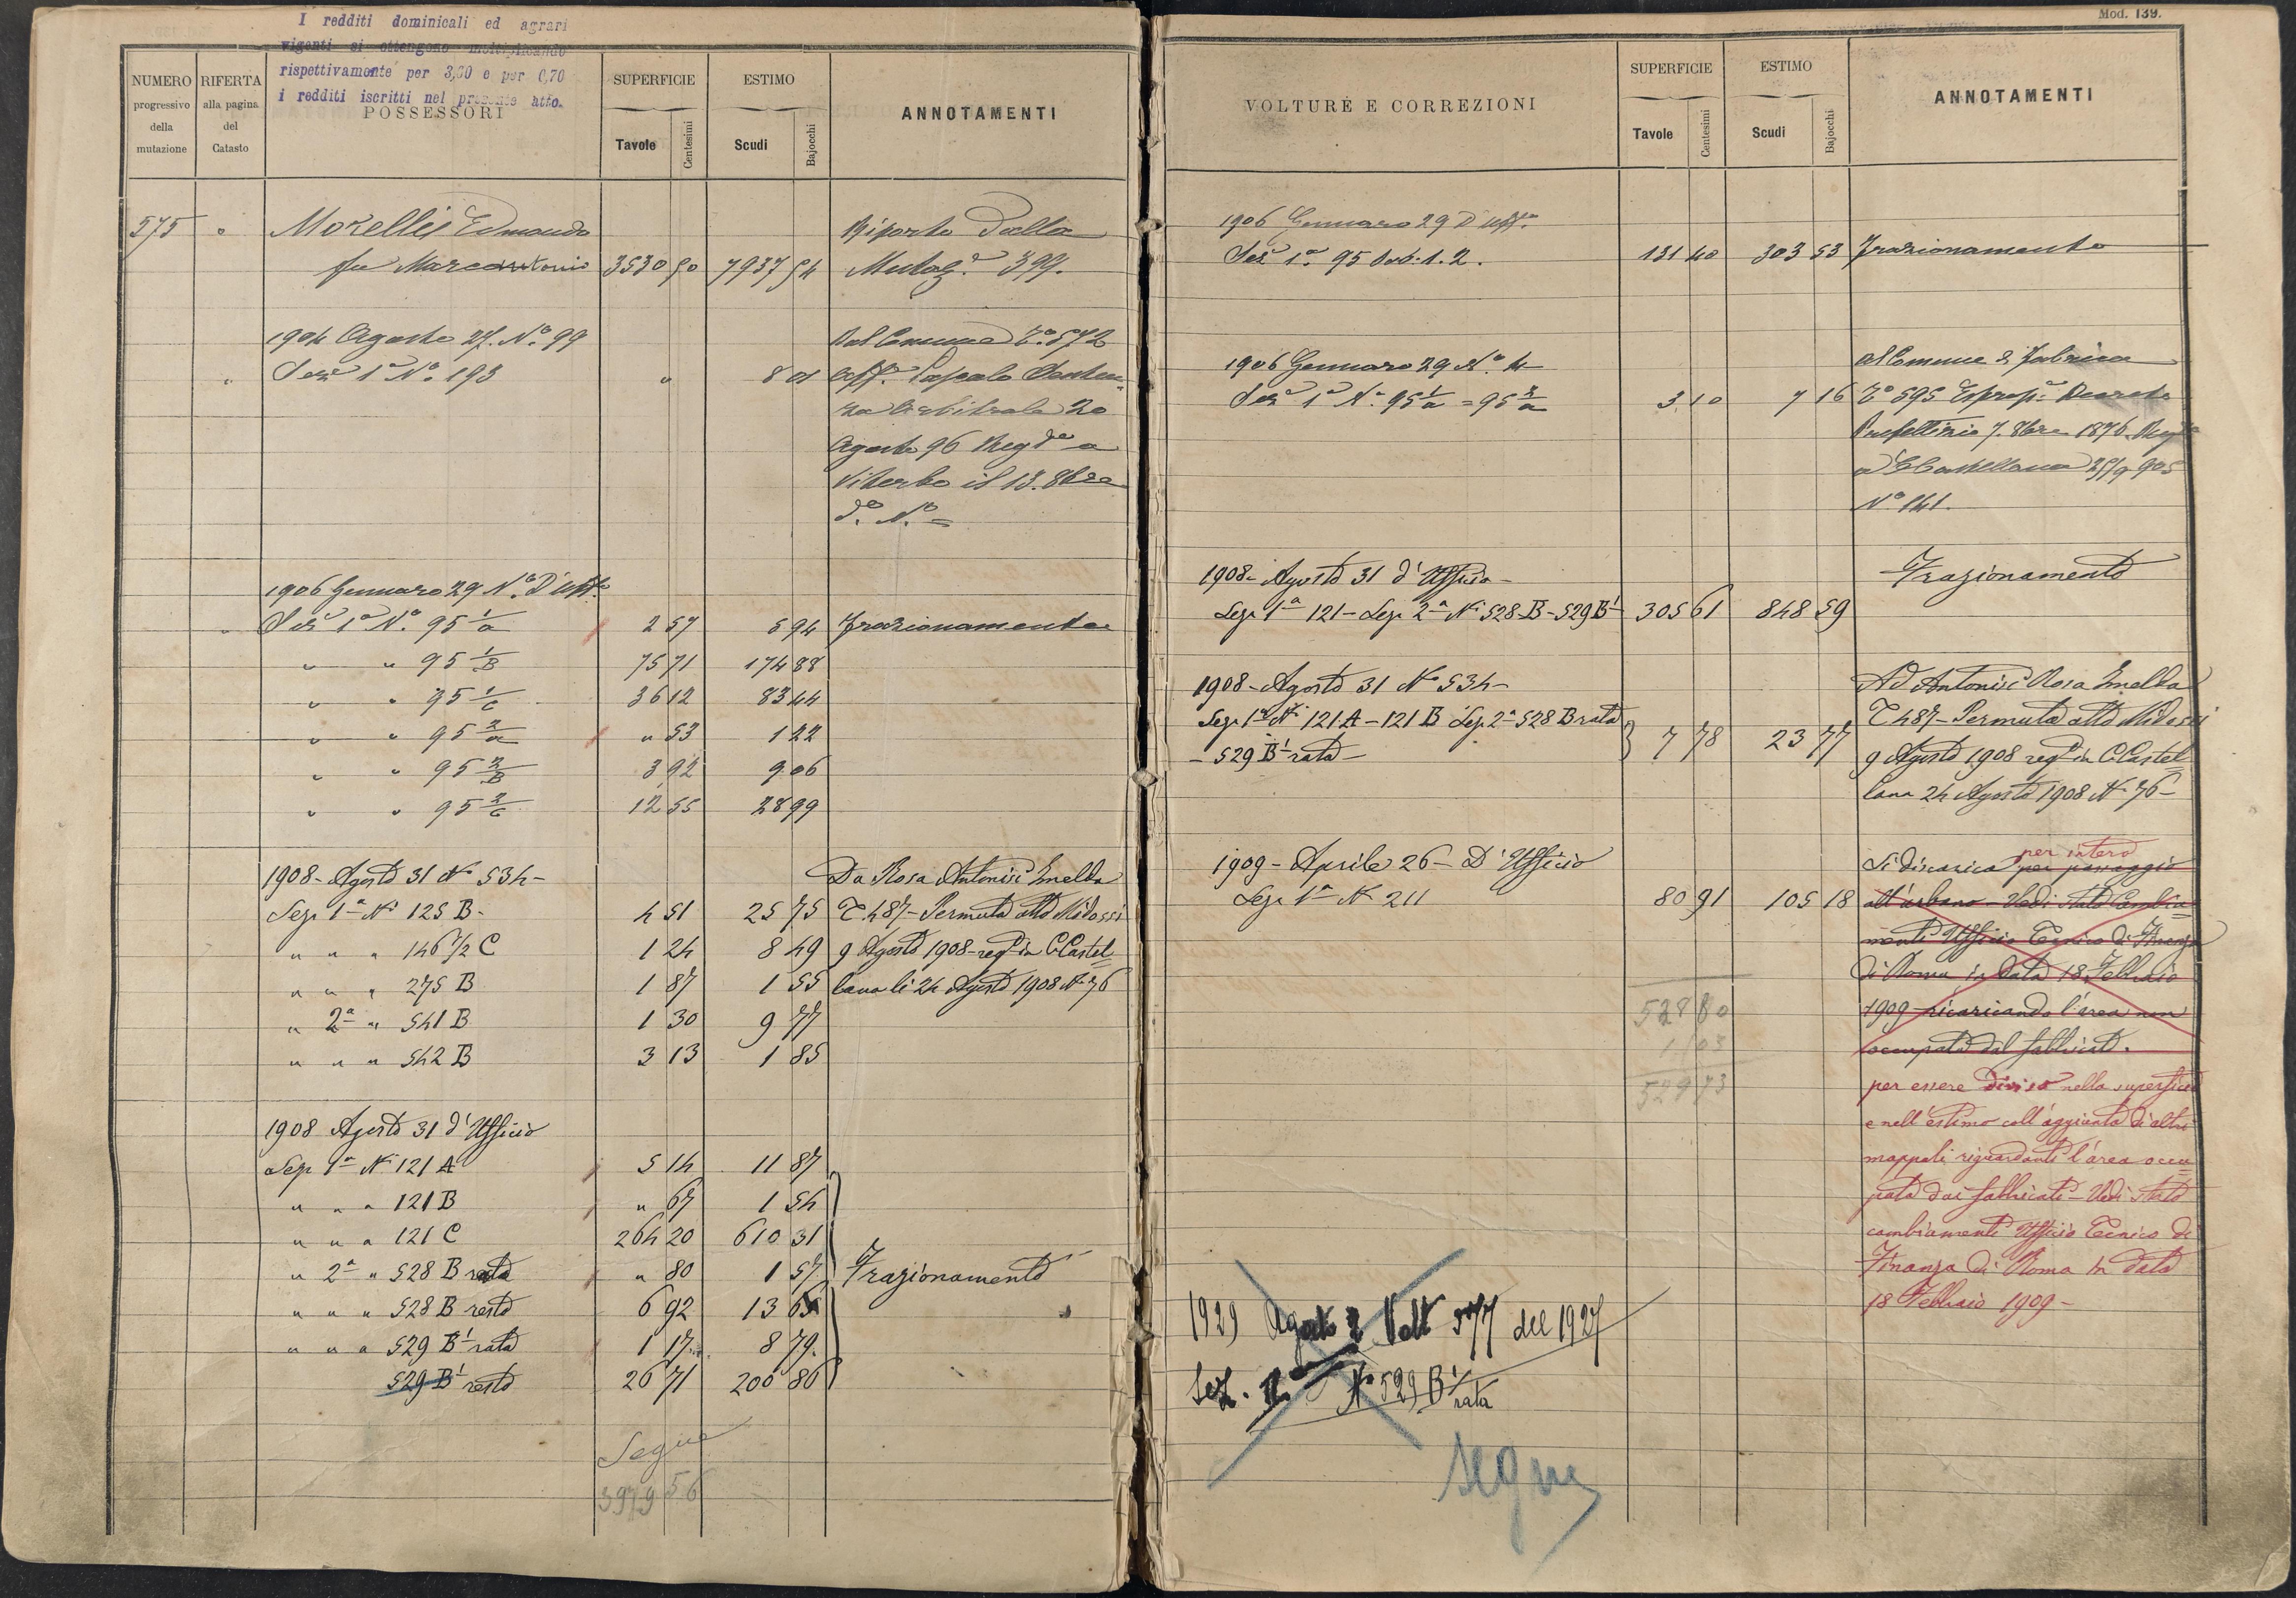 I redditi dominicali ed agrari
vigenti si ottengono moltiplicando
rispettivamente per 3,00 e per 0,70
i redditi iscritti nel presente atto.
NUMERO progressivo della mutazione
RIFERTA alla pagina del Catasto
POSSESSORI
SUPERFICIE
Tavole Centesimi
ESTIMO
Scudi Bajocchi
ANNOTAMENTI
575 " Morelli Edmondo Riporto dalla
fu Marcantonio 3530 90 7937 54 Mutaz.e 399.
1904 Agosto 27. No. 99 Dal Comune To. 572
" Sez.e 1a No. 193 " 8 01 Aff.o Pascolo Senten=
za Arbitrale 20
Agosto 96 Reg.to a
Viterbo il 13. 8bre
do. No. =
1906 Gennaro 29 No. D'Uff.o
" Sez.e 1a No. 95 1/a 2 57 5 94 Frazionamento
" " 95 1/B 75 71 174 88
" " 95 1/c 36 12 83 44
" " 95 2/a " 53 1 22
" " 95 2/B 3 92 9 06
" " 95 2/c 12 55 28 99
1908 - Agosto 31 No 534 - Da Rosa Antonisi Imelda
Sez. 1a No 125 B - 4 51 25 75 T. 487 - Permuta atto Midossi
" " " 146 1/2 C 1 24 8 49 9 Agosto 1908 - reg.to in C. Castel=
" " " 275 B 1 87 1 55 lana li 24 Agosto 1908 No 76
" 2a " 541 B 1 30 9 77
" " " 542 B 3 13 1 85
1908 Agosto 31 d'Ufficio
Sez. 1a No 121 A 5 14 11 87
" " " 121 B " 67 1 54
" " " 121 C 264 20 610 31
" 2a " 528 B rata " 80 1 57 Frazionamento
" " " 528 B resto 6 92 13 65
" " " 529 B1 rata 1 17 8 79.
529 B1 resto 26 71 200 86
Segue
3979 56
Mod. 139.
VOLTURE E CORREZIONI
SUPERFICIE
Tavole Centesimi
ESTIMO
Scudi Bajocchi
ANNOTAMENTI
1906 Gennaro 29 D'Uff.o
Sez.e 1a. 95 Sub. 1. 2. 131 40 303 53 Frazionamento
1906 Gennaro 29 No. 4 Al Comune di Fabrica
Sez.e 1a No. 95 1/a = 95 2/a 3 10 7 16 To 595 Esprop.e Decreto
Prefettizio 7. 8bre 1876. Reg.to
a C. Castellana 25/9 905
No 141.
1908 - Agosto 31 d'Ufficio - Frazionamento
Sez. 1a 121 - Sez. 2a No 528 B - 529 B1 305 61 848 59
1908 - Agosto 31 No 534 - Ad Antonisi Rosa Imelda
Sez. 1a No 121 A - 121 B Sez. 2a 528 B rata T. 487 - Permuta atto Midossi
- 529 B1 rata - 7 78 23 77 9 Agosto 1908 reg.to in C. Castel=
lana 24 Agosto 1908 No 76 -
1909 - Aprile 26 - D'Ufficio per intero
Si discarica per passaggio
Sez. 1a No 211 80 91 105 18 all'urbano - Vedi Stato Cambia=
menti Ufficio Tecnico di Finanza
di Roma in data 18 Febbraio
528 80 1909 - ricaricando l'area non
occupata dal fabbricato.
529 73 per essere diviso nella superficie
e nell'estimo coll'aggiunta di altri
mappali riguardanti l'area occu=
pata dai fabbricati - Vedi Stato
cambiamenti Ufficio Tecnico di
Finanza di Roma in data
18 Febbraio 1909 -
1929 Agosto 2 Volt 577 del 1927
Sez. 2a No 529 B1 rata
segue